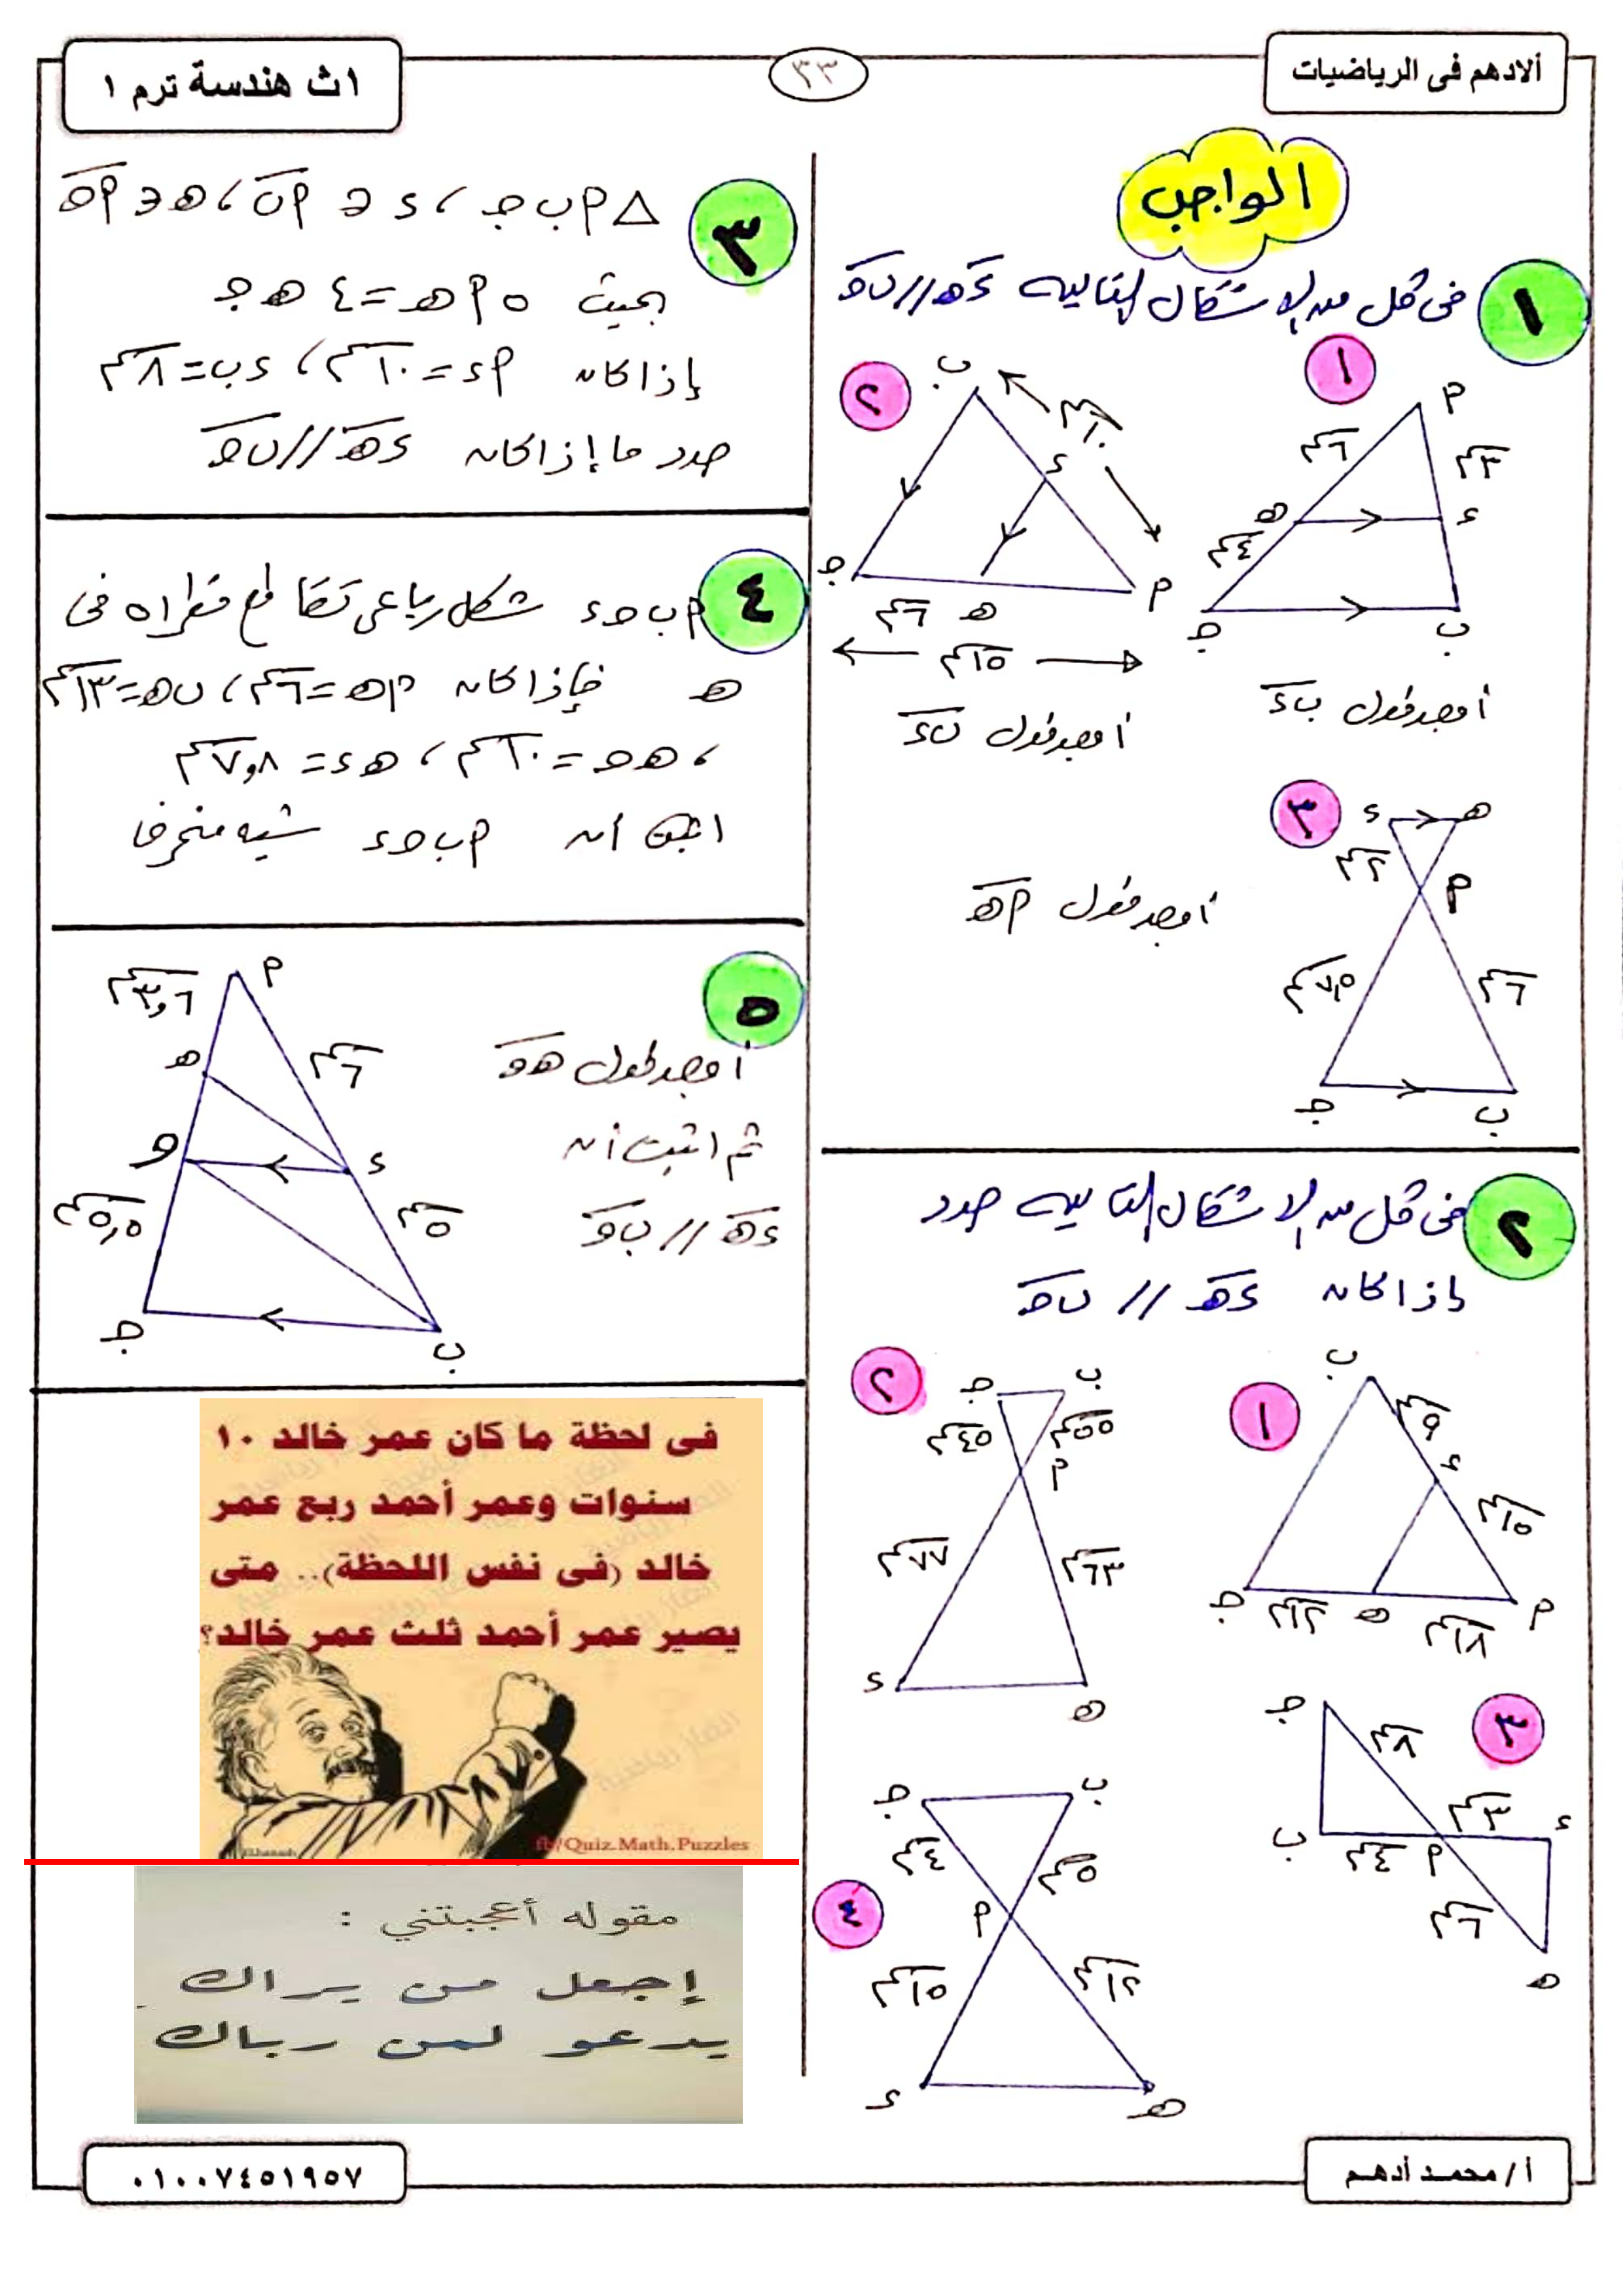 ألادهم فى الرياضيات
٣٣
١ث هندسة ترم ١
الواجب
١ فى كل من الاشكال التاليه ءهـ // ب جـ
١
أ
٣سم
٦سم
ء
هـ
٤سم
ب
جـ
أوجد طول ب ء
٢
ب
١٠سم
ء
أ
جـ
هـ
٦سم
١٥سم
أوجد طول ب ء
٣
ء
هـ
٢سم
أ
٦سم
٧,٥سم
جـ
ب
أوجد طول أ هـ
٢ فى كل من الاشكال التاليه حدد
إذا كان ءهـ // ب جـ
١
ب
٩سم
ء
١٥سم
أ
١٨سم
هـ
١٢سم
جـ
٢
جـ
ب
٤٥سم
٥٥سم
أ
٧٧سم
٦٣سم
ء
هـ
٣
جـ
٨سم
٣سم
ء
ب
٤سم
أ
٦سم
هـ
٤
جـ
ب
٤سم
٥سم
أ
١٥سم
١٢سم
ء
هـ
٣ △ أ ب جـ ، ء ∈ أ ب ، هـ ∈ أ جـ
بحيث ٥ أ هـ = ٤ هـ جـ
إذا كان أ ء = ١٠سم ، ء ب = ٨سم
حدد ما إذا كان ء هـ // ب جـ
٤ أ ب جـ ء شكل رباعى تقاطع قطراه فى
هـ فإذا كان أ هـ = ٦سم ، ب هـ = ١٣سم
، هـ جـ = ١٠سم ، هـ ء = ٧,٨سم
اثبت أن أ ب جـ ء شبه منحرف
٥
أوجد طول هـ و
ثم اثبت أن
ء هـ // ب و
أ
٣,٦سم
٦سم
هـ
و
ء
٥,٥سم
٥سم
جـ
ب
فى لحظة ما كان عمر خالد ١٠
سنوات وعمر أحمد ربع عمر
خالد (فى نفس اللحظة).. متى
يصير عمر أحمد ثلث عمر خالد؟
fb/Quiz.Math.Puzzles
مقوله أعجبتني :
إجعل من يراك
يدعو لمن رباك
أ / محمد أدهم
٠١٠٠٧٤٥١٩٥٧